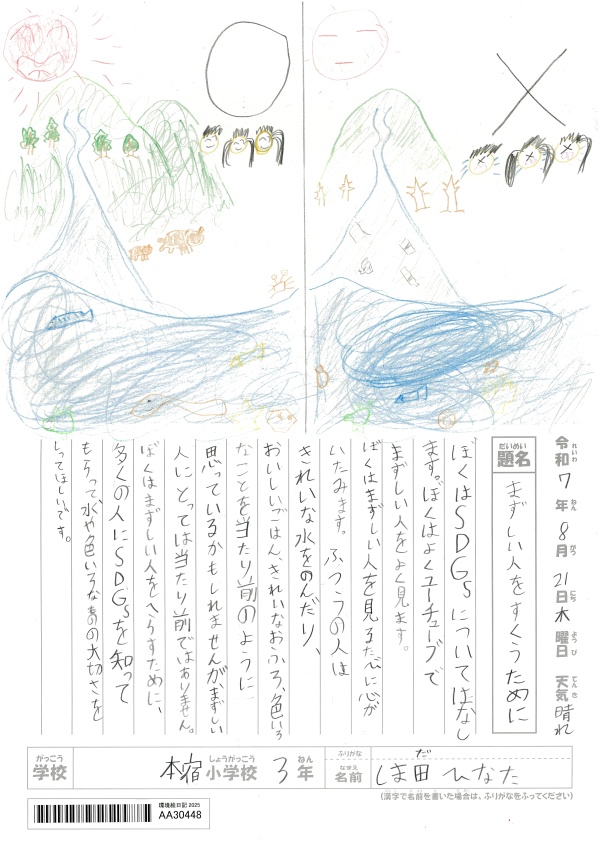 令和7年8月21日木曜日 天気 晴れ
れいわ ねん がつ にち ようび てんき
だいめい
題名
まずしい人をすくうために
ぼくはSDGsについてはなし
ます。ぼくはよくユーチューブで
まずしい人をよく見ます。
ぼくはまずしい人を見るたびに心が
いたみます。ふつうの人は
きれいな水をのんだり、
おいしいごはん、きれいなおふろ、色いろ
なことを当たり前のように
思っているかもしれませんが、まずしい
人にとっては当たり前ではありません。
ぼくはまずしい人をへらすために、
多くの人にSDGsを知って
もらって、水や色いろなものの大切さを
しってほしいです。
がっこう しょうがっこう ねん ふりがな だ
学校 本宿小学校 3年 なまえ 名前 しま田 ひなた
(漢字で名前を書いた場合は、ふりがなをふってください)
環境絵日記 2025
AA30448